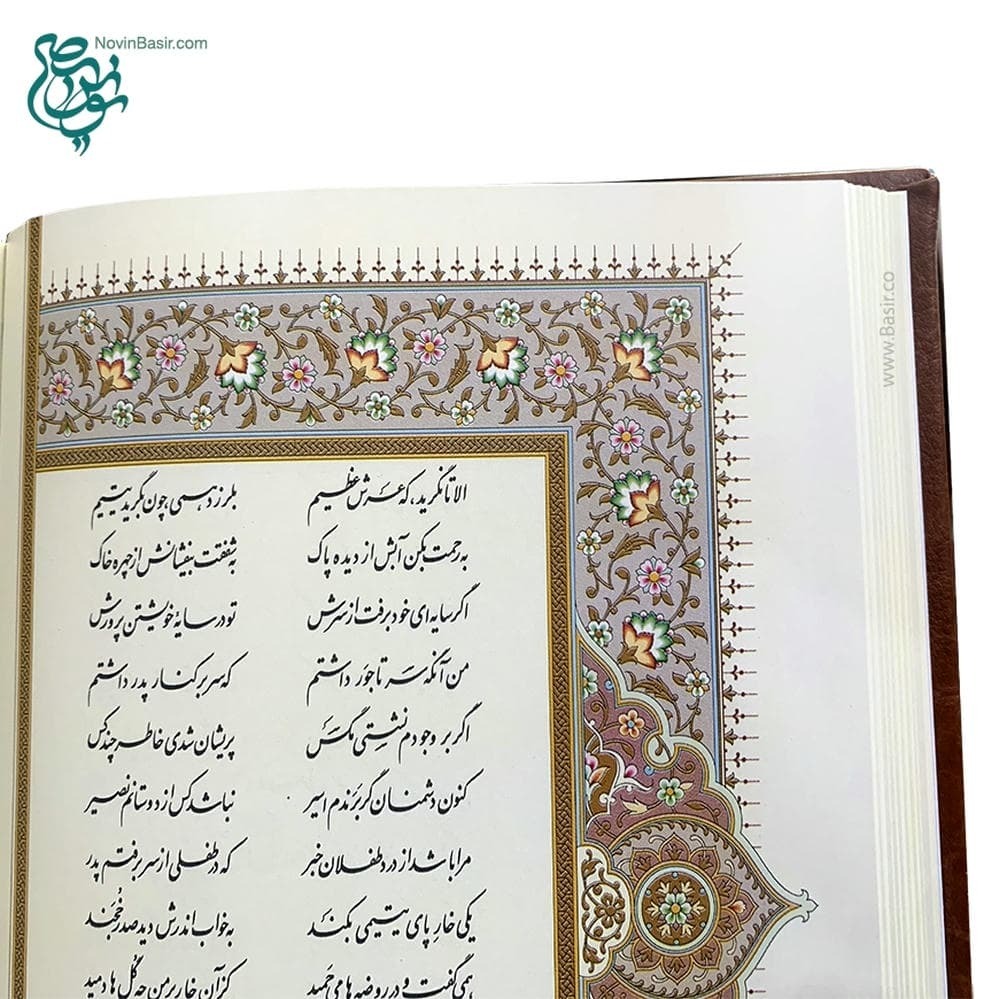 NovinBasir.com
نوین بصیر
www.Basir.co
الا تا نگرید، که عرش عظیم بلرزد همی چون بگرید یتیم
به رحمت بکن آبش از دیده پاک به شفقت بیفشانش از چهره خاک
اگر سایه‌ای خود برفت از سرش تو در سایهٔ خویشتن پرورش
من آنگه سر تاجور داشتم که سر بر کنار پدر داشتم
اگر بر وجودم نشستی مگس پریشان شدی خاطر چند کس
کنون دشمنان گر برندم اسیر نباشد کس از دوستانم نصیر
مرا باشد از درد طفلان خبر که در طفلی از سر برفتم پدر
یکی خار پای یتیمی بکند به خواب اندرش دید صدر خجند
همی گفت و در روضه‌ها می‌چمید کز آن خار بر من چه گل‌ها دمید